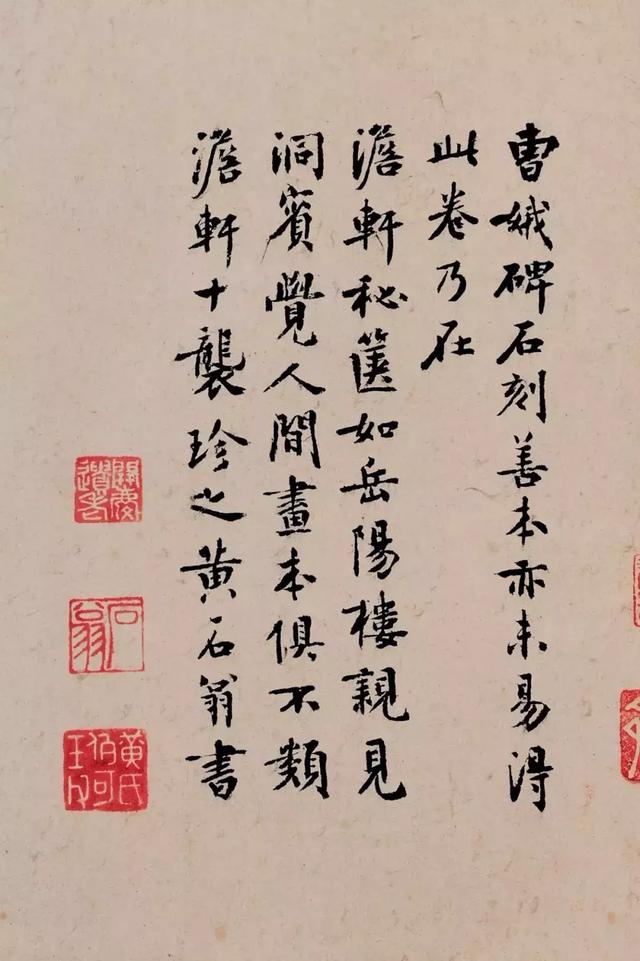 曹娥碑石刻善本亦未易得
此卷乃在
澹軒秘篋如岳陽樓親見
洞賓覺人間畫本俱不類
澹軒十襲珍之黄石翁書
石翁